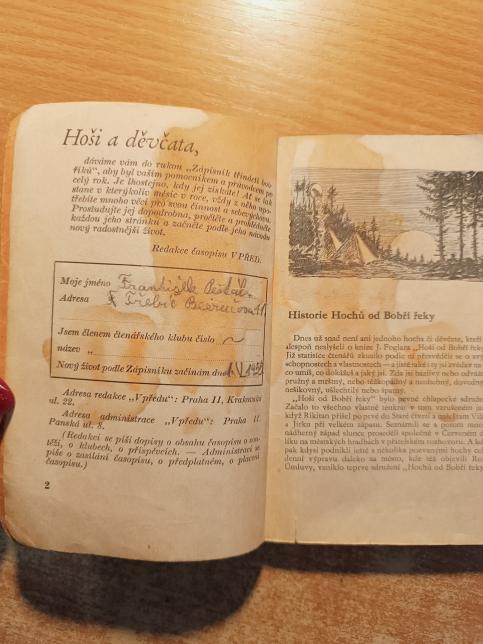 Hoši a děvčata,
dáváme vám do rukou „Zápisník třinácti bob-
říků“, aby byl vaším pomocníkem a průvodcem po
celý rok. Je lhostejno, kdy jej získáte! Ať se tak
stane v kterýkoliv měsíc v roce, vždy z něho upo-
třebíte mnoho věcí pro svou činnost a sebevýchovu.
Prostudujte jej dopodrobna, pročtěte a prohlédněte
každou jeho stránku a začněte podle jeho návodu
nový radostnější život.
Redakce časopisu VPŘED.
Moje jméno František
Adresa Třebíč
Jsem členem čtenářského klubu číslo
název „
Nový život podle Zápisníku začínám dne
Adresa redakce „Vpředu“: Praha II, Krakovská
ul. 22.
Adresa administrace „Vpředu“: Praha II.
Panská ul. 8.
(Redakci se píší dopisy o obsahu časopisu o sou-
těži, o klubech, o příspěvcích. — Administraci se
píše o zasílání časopisu, o předplatném, o placení
časopisu.)
2
Historie Hochů od Bobří řeky
Dnes už snad není ani jednoho hocha či děvčete, kteří
alespoň neslyšeli o knize J. Foglara „Hoši od Bobří řek
Již statisíce čtenářů zkusilo podle ní pravdivěji se o
schopnostech a vlastnostech — a jistě také ty jsi zvědav na
co umíš, co dokážeš a jaký jsi. Zda jsi bázlivý nebo odváž
pružný a mrštný, nebo těžkopádný a neohebný,
nešikovný, ušlechtilý nebo špatný.
„Hoši od Bobří řeky“ bylo pevné chlapecké sdruž
Začalo to všechno vlastně tenkrát v tom vzrušeném
když Rikitan přišel po prvé do Staré čtvrti a
a Jirku při velkém zápasu. Seznámil se a potom
nádherný západ slunce proseděli společně v Červeném
lku na městských hradbách v přátelském rozhovoru. A
pak kdysi podnikli ještě s několika pozvanými hochy
denní výpravu daleko za město, kde též objevili
Úmluvy, vzniklo teprve sdružení „Hochů od Bobří řek